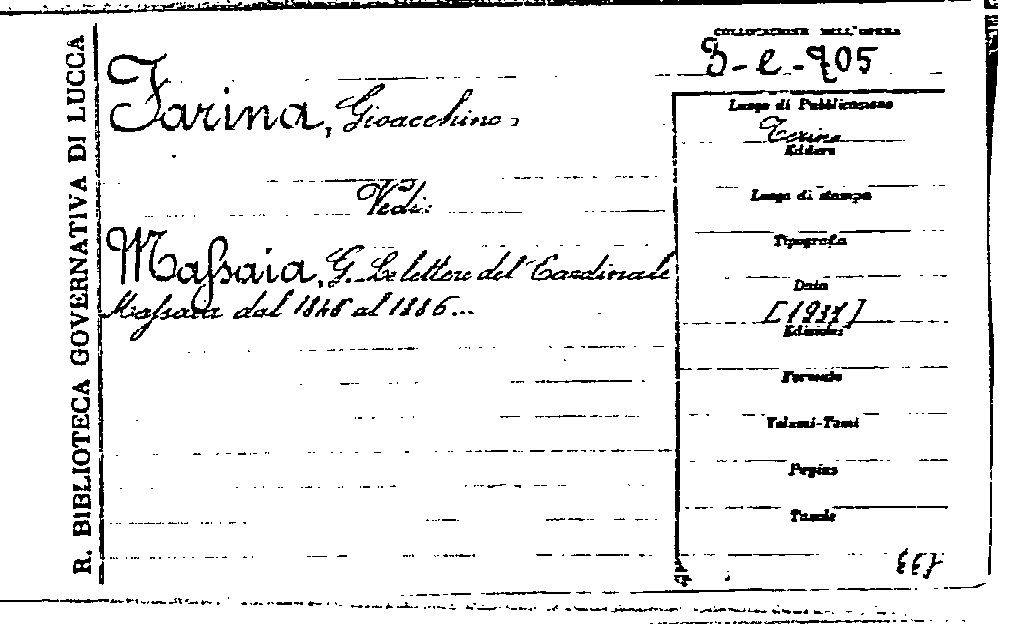 R. BIBLIOTECA GOVERNATIVA DI LUCCA
COLLOCAZIONE DELL'OPERA
3-e-905
Farina, Gioacchino.
Vedi:
Massaia, G. Le lettere del Cardinale
Massaia dal 1846 al 1886...
Luogo di Pubblicazione
Torino
Editore
Luogo di stampa
Tipografia
Data
Edizione
Formato
Volumi-Tomi
Pagine
Tavole